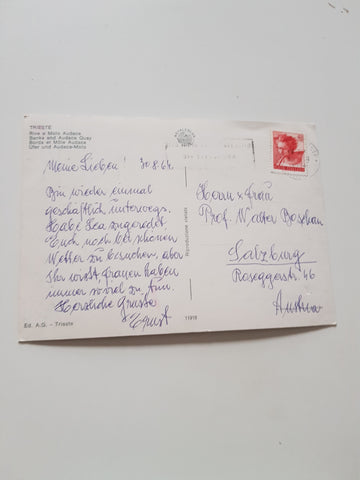 TRIESTE
Rive e Molo Audace
Banks and Audace Quay
Bords et Môle Audace
Ufer und Audace-Molo
Meine Lieben! 30.8.64.
Bin wieder einmal
geschäftlich unterwegs.
Habe Lea zugeredet
Euch noch bei schönem
Wetter zu besuchen, aber
Ihr wisst Frauen haben
immer so viel zu tun.
Herzliche Grüsse
Ernst
Herrn u Frau
Prof. Walter
Salzburg
Roseggerstr. 46
Austria
Riproduzione vietata
Ed. A.G. - Trieste
11918